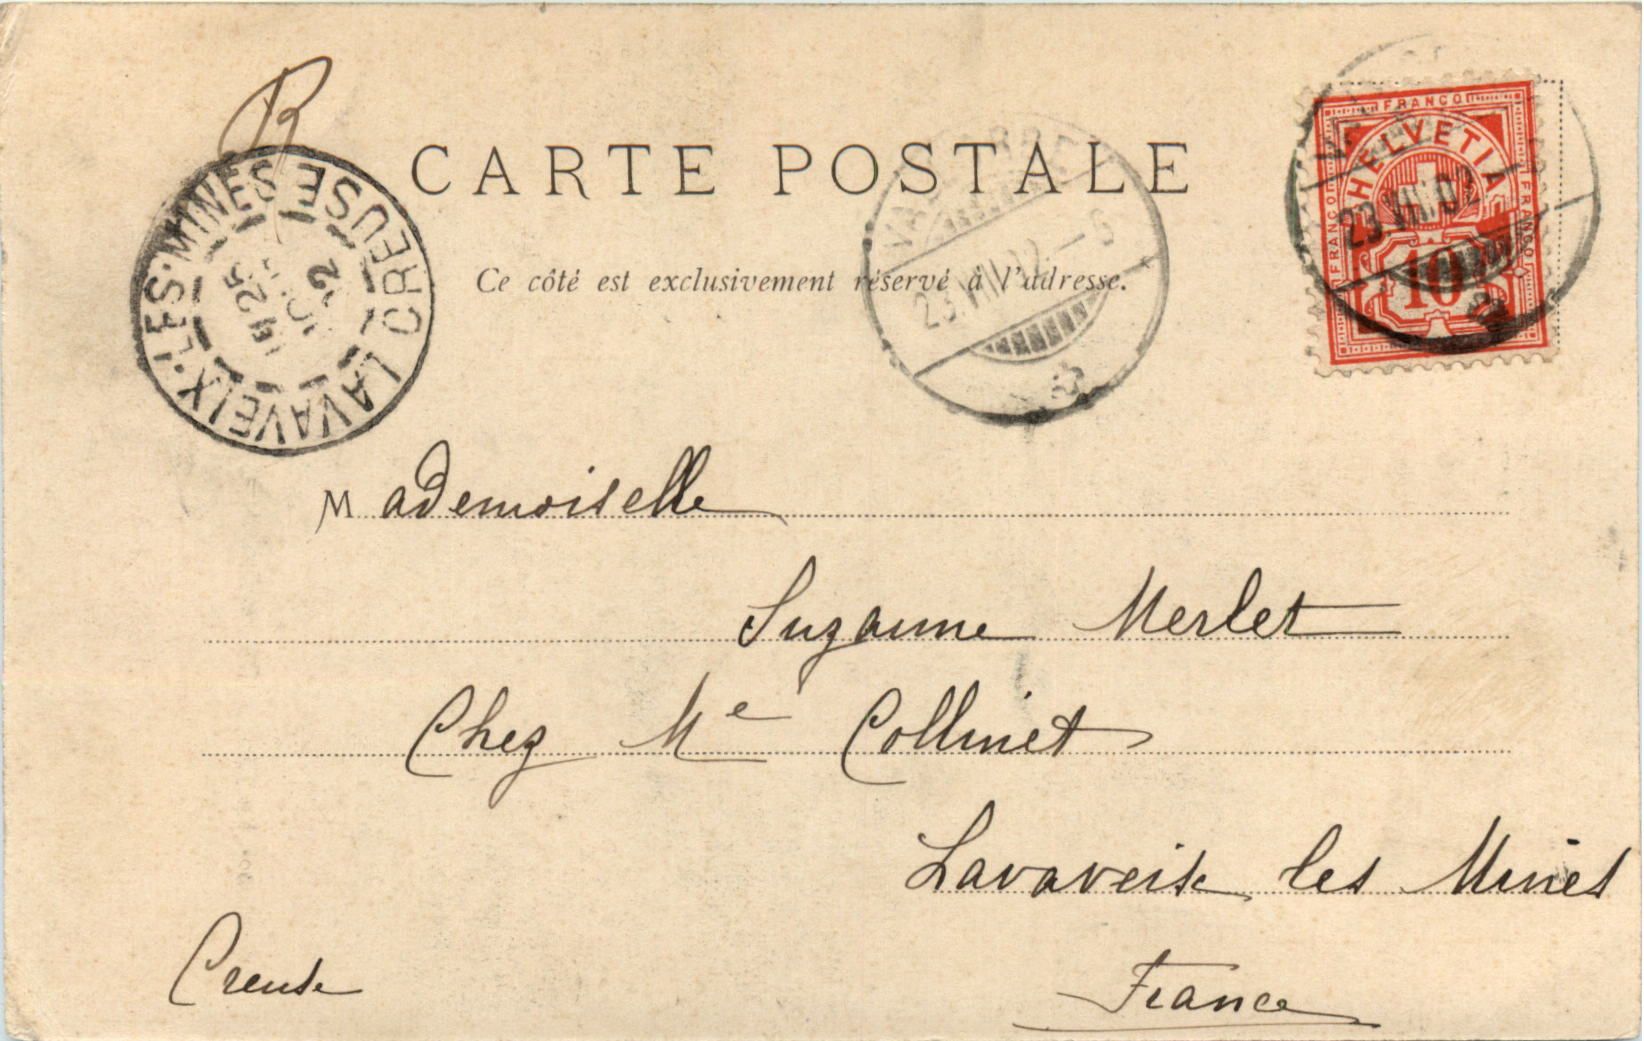 B
CARTE POSTALE
Ce côté est exclusivement réservé à l'adresse.
LAVAVEIX-LES-MINES CREUSE
25
02
23.VIII.02.–6
FRANCO
HELVETIA
FRANCO
FRANCO
10
23.VIII.02
Mademoiselle
Suzanne Merlet
Chez Me Collinet
Lavaveix les Mines
Creuse
France